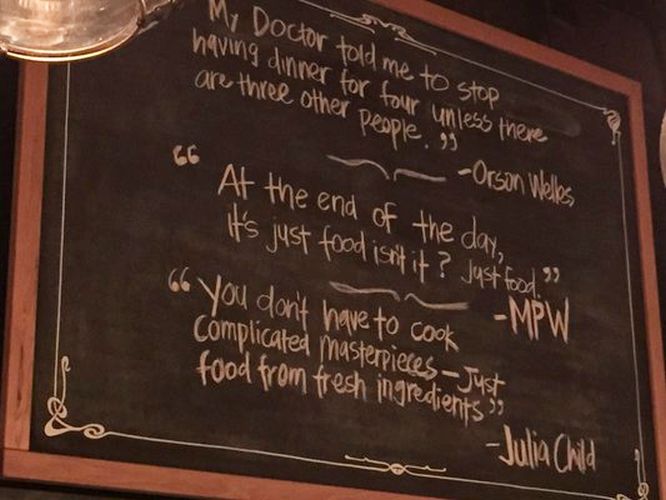 My Doctor told me to stop
having dinner for four unless there
are three other people."
-Orson Welles
"At the end of the day,
it's just food isn't it? Just food."
-MPW
"You don't have to cook
complicated masterpieces - Just
food from fresh ingredients"
-Julia Child